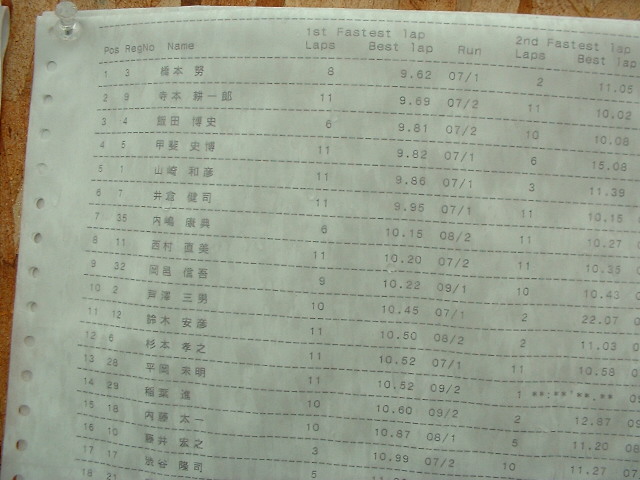 1st Fastest lap 2nd Fastest lap
Pos RegNo Name Laps Best lap Run Laps Best lap
1 3 橋本 努 8 9.62 07/1 2 11.05
2 9 寺本 耕一郎 11 9.69 07/2 11 10.02
3 4 飯田 博史 6 9.81 07/2 10 10.08
4 5 甲斐 史博 11 9.82 07/1 6 15.08
5 1 山崎 和彦 11 9.86 07/1 3 11.39
6 7 井倉 健司 11 9.95 07/1 11 10.15
7 35 内嶋 康典 6 10.15 08/2 11 10.27
8 11 西村 直美 11 10.20 07/2 11 10.35
9 32 岡邑 信吾 9 10.22 09/1 10 10.43
10 2 芦澤 三男 10 10.45 07/1 2 22.07
11 12 鈴木 安彦 11 10.50 08/2 2 11.03
12 6 杉本 孝之 11 10.52 07/1 11 10.58
13 28 平岡 未明 11 10.52 09/2 1 **:**'**.**
14 29 稲葉 進 10 10.60 09/2 2 12.87
15 18 内藤 太一 10 10.87 08/1 5 11.20
16 10 藤井 宏之 3 10.99 07/2 10 11.27
17 17 渋谷 隆司 5
18 21